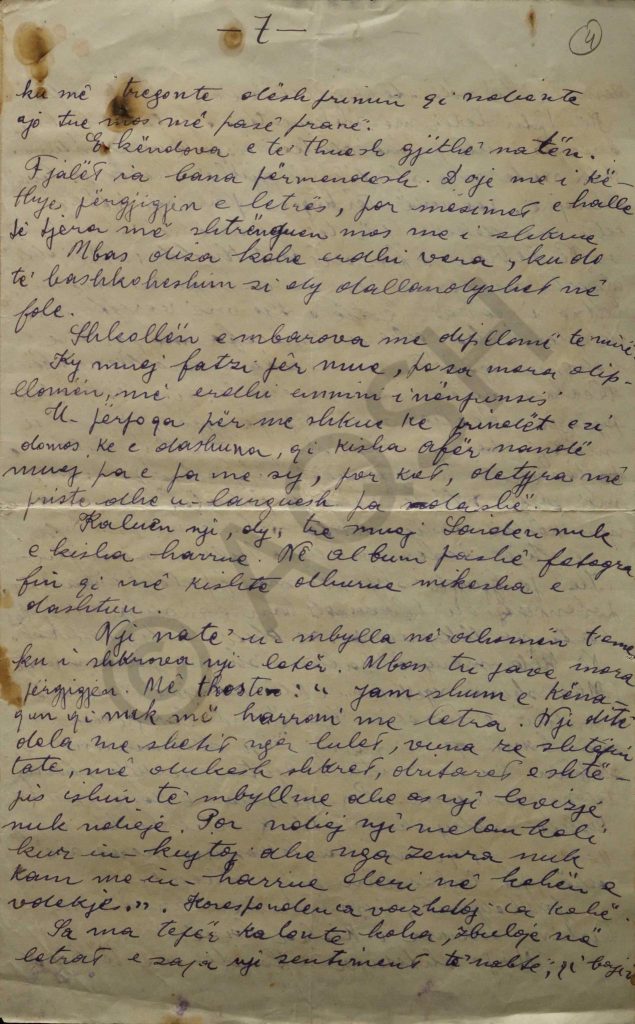 — 7 —
4
ku më tregonte dëshprimin qi ndiente
ajo tue mos më pasë pranë.
E këndova e të thuesh gjithë natën.
Fjalët ia bana përmendësh. Doje me i kë-
thye përgjigjen e letrës, por mësimet e halle
të tjera më shtrënguen mos me i shkrue
Mbas disa kohe erdhi vera, ku do
të bashkoheshim si dy dallandyshet në
fole.
Shkollën e mbarova me dipllomë të mirë.
Ky muej fatzi për mue, posa mora dip-
llomën, më erdhi emnimi i nënpunsis
U-përfoqa për me shkue ke prindët e si
domos ke e dashuna, qi kisha afër nandë
muej pa e pa me sy, por kot, detyra më
priste dhe u-largue sh pa
Kaluen nji, dy, tre muej Sonden nuk
e kisha harrue. Në album pashë fotogra
fin qi më kishte dhurue mikesha e
dashtun.
Nji natë u-mbylla në dhomën t'eme
ku i shkrova nji letër. Mbas tri jave mora
përgjigjen. Më thoste: " Jam shum e këna
qun qi nuk më harroni me letra. Nji ditë
dola me shetit nga lulet, vuna re shtëpin
tate, më dukesh shkret, dritaret e shtë-
pis ishin të mbyllme dhe as nji levizje
nuk ndieje. Por ndiej nji melankoli
kur in-kujtoj dhe nga zemra nuk
kam me in-harrue deri në kohën e
vdekjes.". Korespondenca vazhdoj ca kohë.
Sa ma tepër kalonte koha, zbuloje në
letrat e saja nji sentiment të naltë, qi bajin
© AQSH